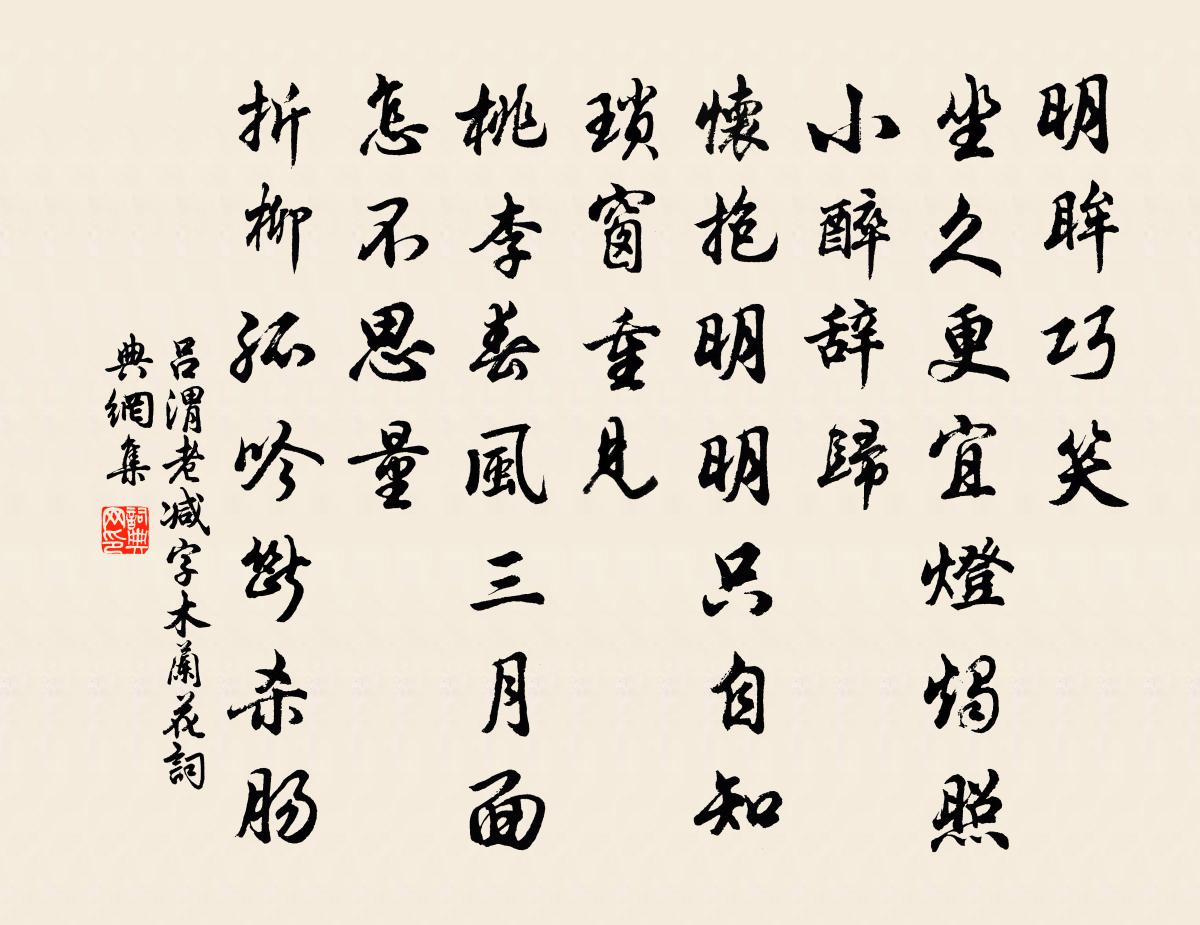 明眸巧笑
坐久更宜燈燭照
小醉辞歸
懷抱明明只自知
瑣窗重見
桃李春風三月面
怎不思量
折柳孤吟斷杀肠
吕渭老减字木蘭花詞
典網集
詞典网印